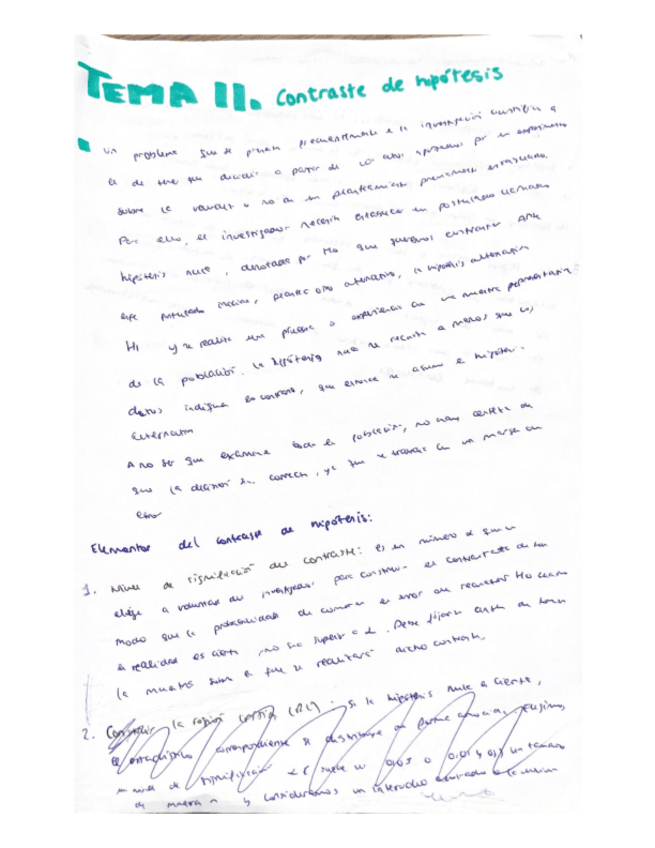 TEMA II. Contraste de hipótesis
un problema que se plantea frecuentemente en la investigación científica
es de tener que decidir a partir de los datos aportados por un experimento
sobre la validez o no de un planteamiento previamente establecido.
Por ello, el investigador necesita establecer un postulado llamado
hipótesis nula, denotada por Ho que queremos contrastar. Ante
este postulado inicial, plantea otro alternativo, la hipótesis alternativa
H1 y se realiza una prueba o experiencia con una muestra representativa
de la población. La hipótesis nula se rechaza a menos que los
datos indiquen lo contrario, que entonces se asume la hipótesis
alternativa
A no ser que examine toda la población, no hay certeza de
que la decisión sea correcta, ya que se trabaja con un margen de
error
Elementos del contraste de hipótesis:
1. Nivel de significación del contraste: es un número α que se
elige a voluntad del investigador para construir el contraste de tal
modo que la probabilidad de cometer el error de rechazar Ho cuando
en realidad es cierta no sea superior a α. Debe fijarse antes de tomar
la muestra sobre la que se realizará dicho contraste.
2. Construir la región crítica (RC): si la hipótesis nula es cierta,
el estadístico correspondiente se distribuye de forma conocida, elegimos
un nivel de significación α (suele ser 0,05 o 0,01) un tamaño
de muestra n y consideramos un intervalo